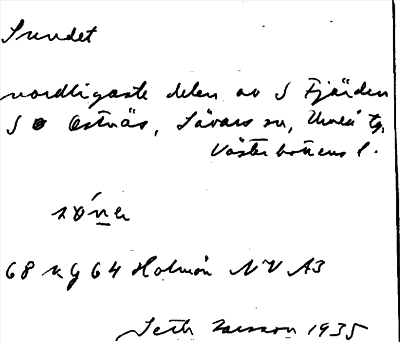 Sundet
nordligaste delen av S Fjärden
S Ostnäs, Sävars sn, Umeå tg,
Västerbottens l.
68 64 Holmön NV A3
Larsson 1935